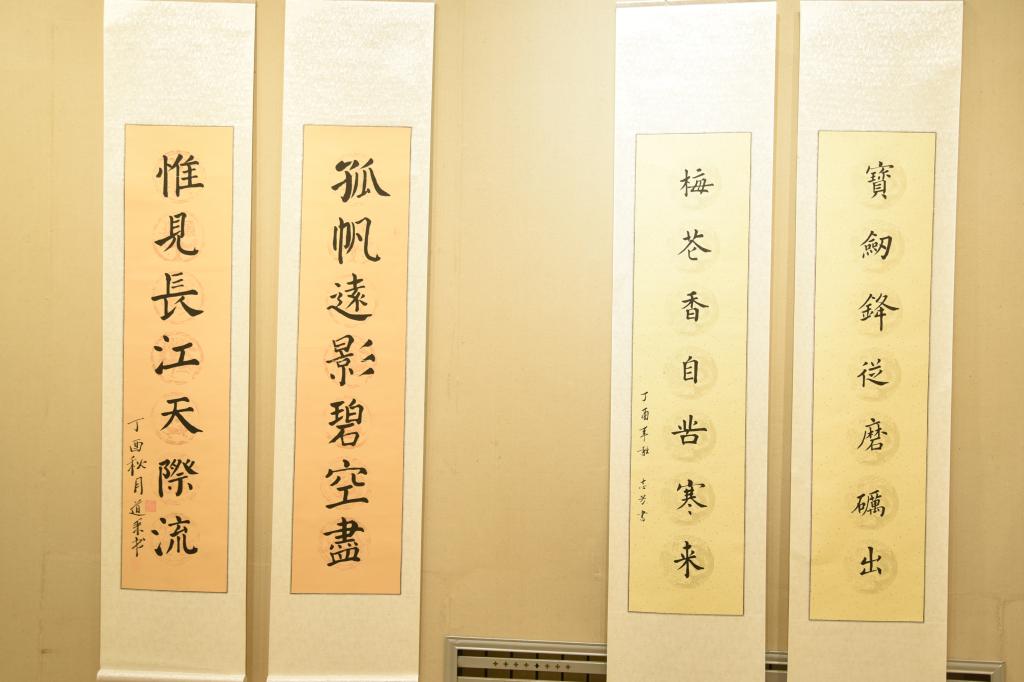 寶劒鋒從磨礪出
梅苍香自苦寒来
丁酉年秋 志芳書
孤帆遠影碧空盡
惟見長江天際流
丁酉秋月道来书